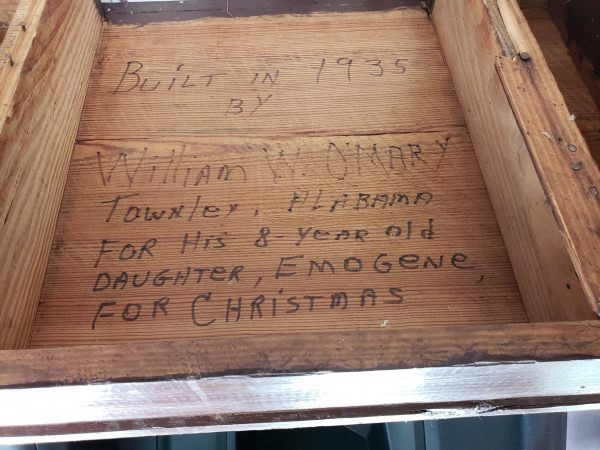 BUiLT iN 1935
BY
WilliAM W. O'MARY
TowNley, AlABAMA
FOR His 8-YEAR Old
DAUGHTER, EMOGENE,
FOR CHRiSTMAS